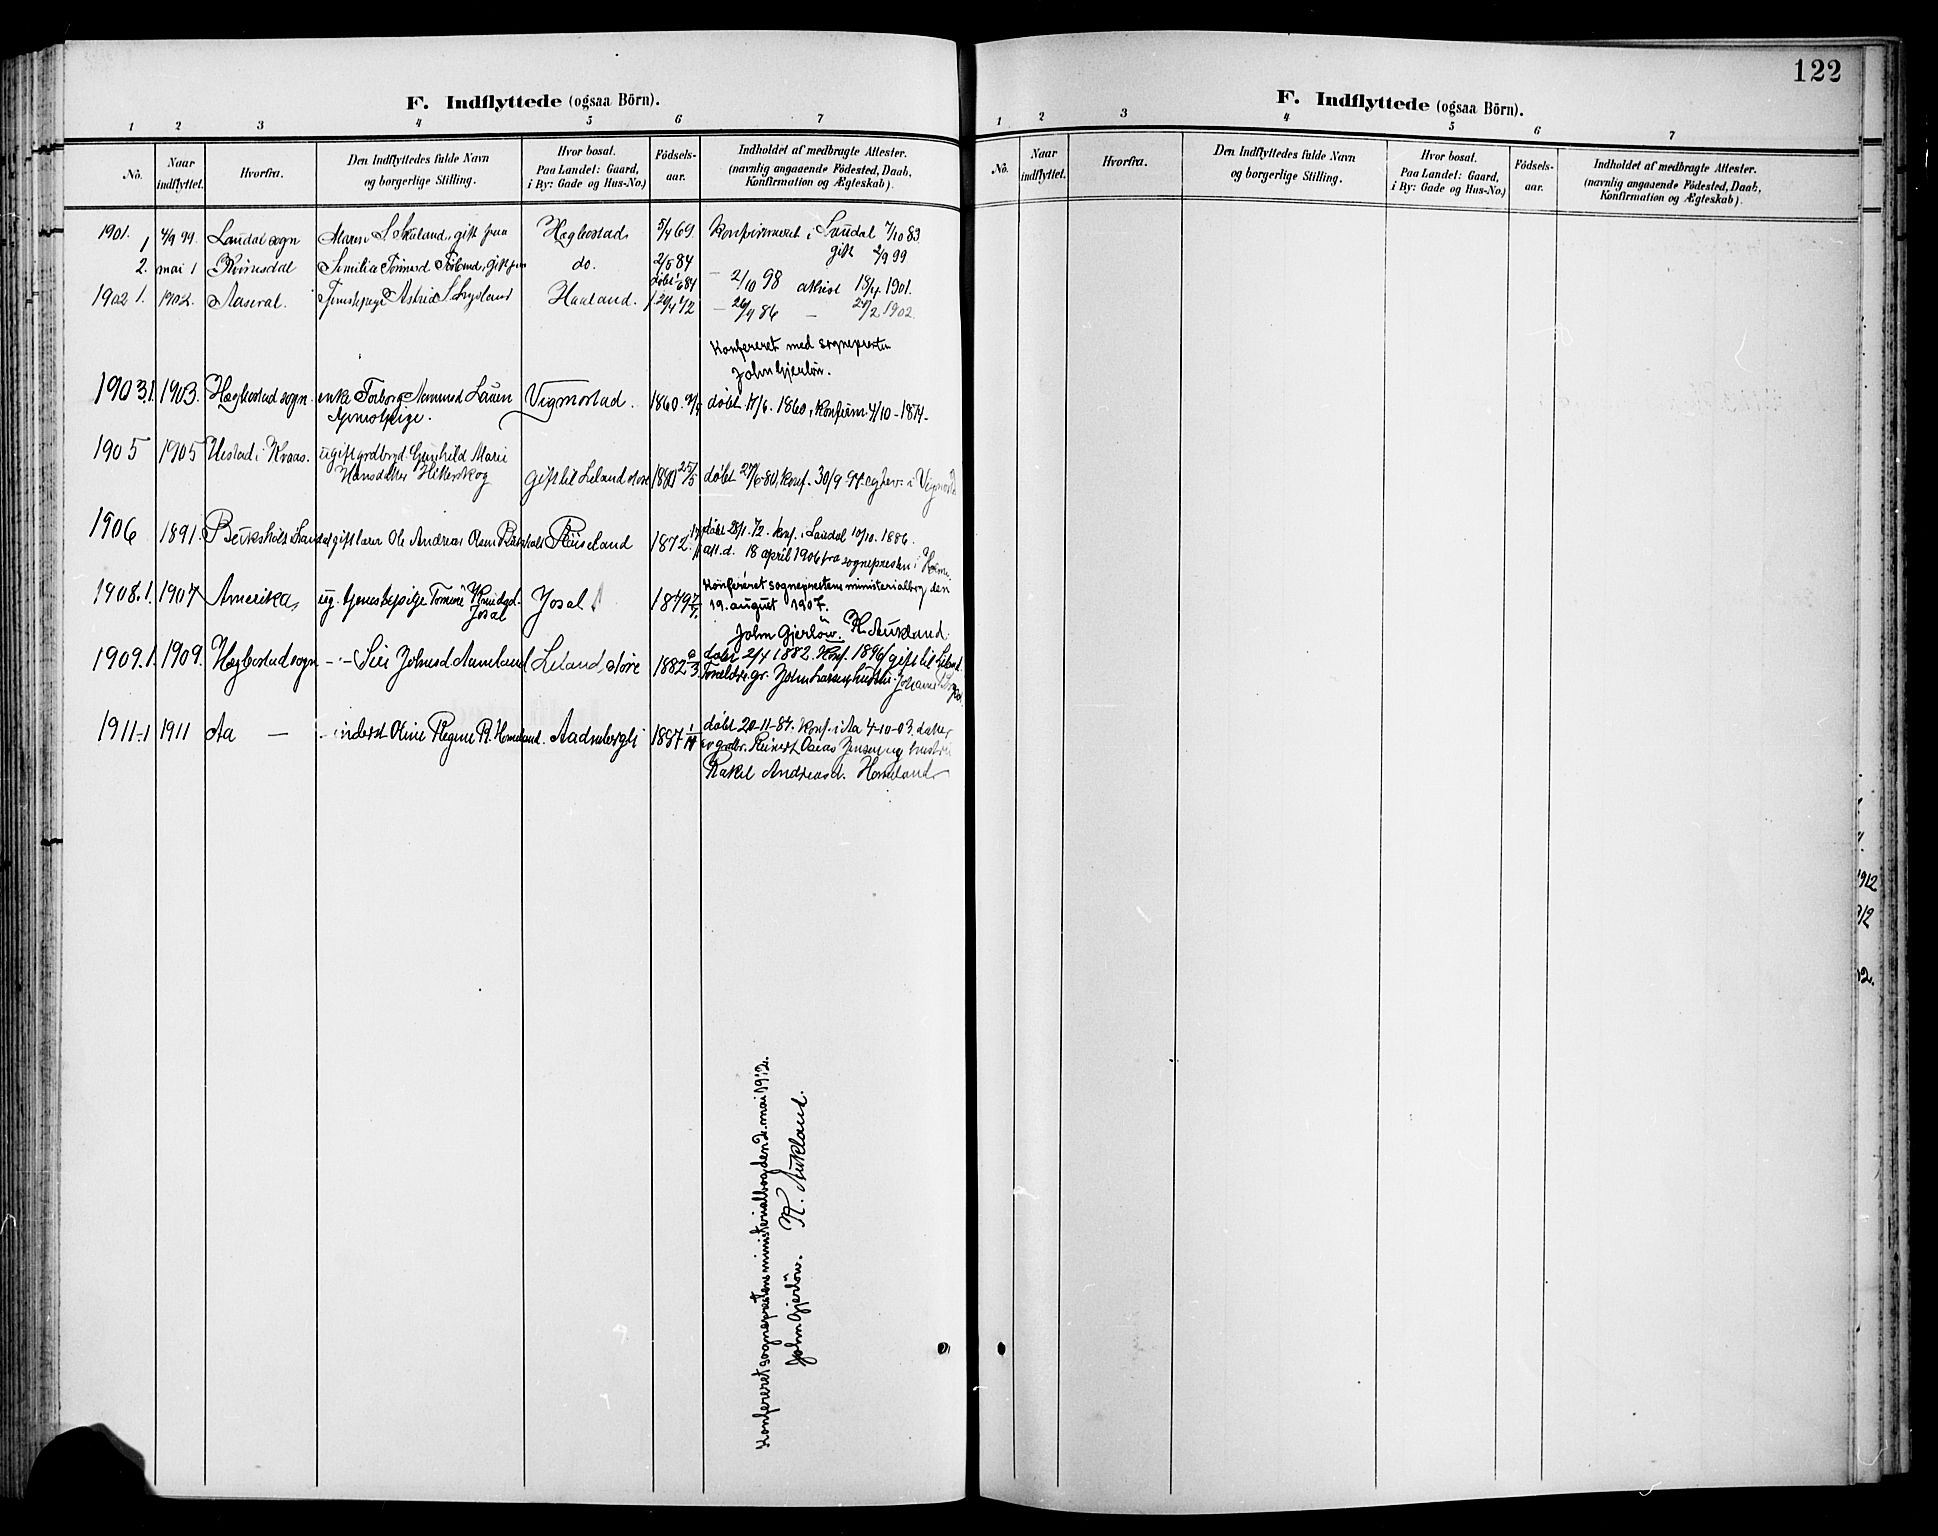 F. Indflyttede (ogsaa Börn).
1 2 3 4 5 6 7
No. Naar indflyttet. Hvorfra. Den Indflyttedes fulde Navn og borgerlige Stilling. Hvor bosat. Paa Landet: Gaard, i By: Gade og Hus-No.) Födsels-aar. Indholdet af medbragte Attester. (navnlig angaaende Födested, Daab, Konfirmation og Ægteskab).
1901. 1 4/9 99 Laudal sogn Maren S. Skuland, gift paa Hægbostad 5/4 69 Konfirmeret i Laudal 7/10 83
gift 2/9 99
2. mai 1 do. 2/5 84
døbt 1/6 84 - 2/10 98 attest 18/4 1901.
1902 1. 1902. Aaseral. Tjenstpige Astrid S. Lygland Haaland. 20/4 72 - 26/9 86 - 24/2 1902.
Konfereret med sognepresten
John Gjerløw.
1903.1. 1903. Hægbostad sogn. enke Torborg Aamund Lauen Vigmostad. 1860. døbt 17/6. 1860, Konfirm 4/10-1874-
tjenestpige.
1905 1905 i Kraas. ugift grdbrgd. Gunhild Marie
Hansdatter Hilterskog gift til Leland støre 1880 25/5 døbt 27/6-80, konf. 30/9 94 i Vigmostad
1906 1891. gift lærer Ole Andreas Olsen 1872 døbt 28/1. 72. konf. i Laudal 10/10. 1886.
att. d. 18 april 1906 fra sognepresten i Holme.
1908.1. 1907 Amerika, ug. tjenestepige Tomine Knudsd. Josal Josal 1849 Konfereret sogneprestens ministerialbog den
19. august 1907.
John Gjerløw. K. Aukland.
1909.1. 1909. Hægbostad sogn - - Siri Johnsd Aamland Leland, støre 1882 døbt 2/4 1882. Konf. 1896/ gift til Leland.
Forældre: gr. John Larsen, hustru Johanne
1911-1 1911 Aa — - inderst Oline Regine R. Homeland. Aadnebergli 1887 døbt 20-11-87. konf. i Aa 4-10-03. datter
av grdbr. Reinert Oseas Jensen og hustru
Rakel Andreasd. Homeland
Konfereret sogneprestens ministerialbog den 2. mai 1912.
John Gjerløw. K. Aukland.
122
F. Indflyttede (ogsaa Börn).
1 2 3 4 5 6 7
No. Naar indflyttet. Hvorfra. Den Indflyttedes fulde Navn og borgerlige Stilling. Hvor bosat. Paa Landet: Gaard, i By: Gade og Hus-No.) Födsels-aar. Indholdet af medbragte Attester. (navnlig angaaende Födested, Daab, Konfirmation og Ægteskab).